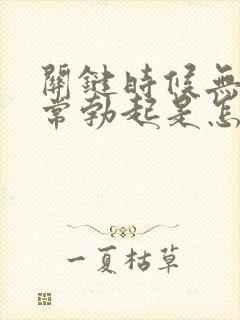 關鍵時候無
常勃起是怎
一夏枯草